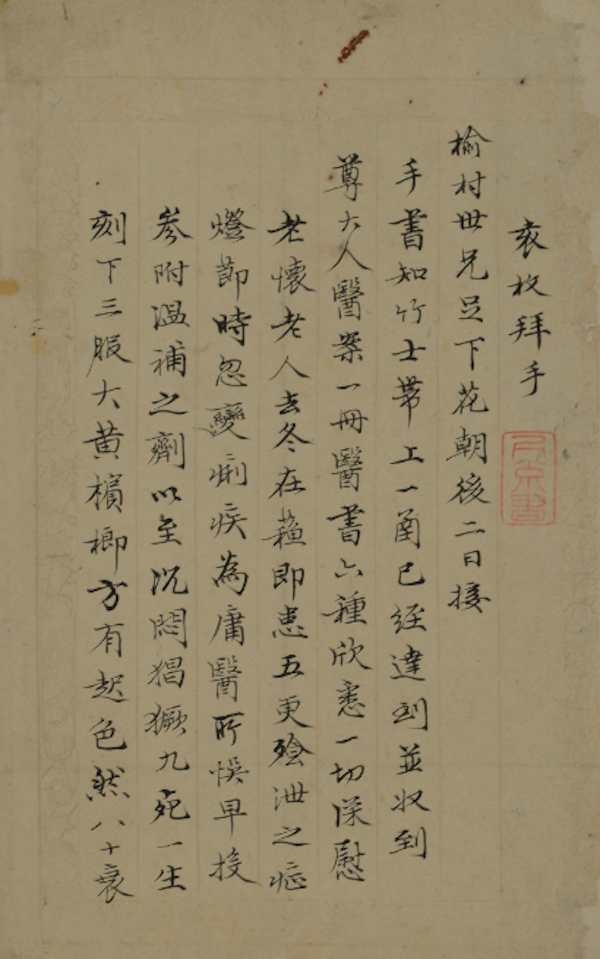 袁枚拜手
榆村世兄足下花朝後二日接
手書知竹士帶上一函已經達到並收到
尊大人醫案一冊醫書六種欣悉一切深慰
老懷老人去冬在蘓即患五更飱泄之症
燈節時忽變痢疾為庸醫所悞早投
參附溫補之劑以至沉悶猖獗九死一生
刻下三服大黃檳榔方有起色然八十衰